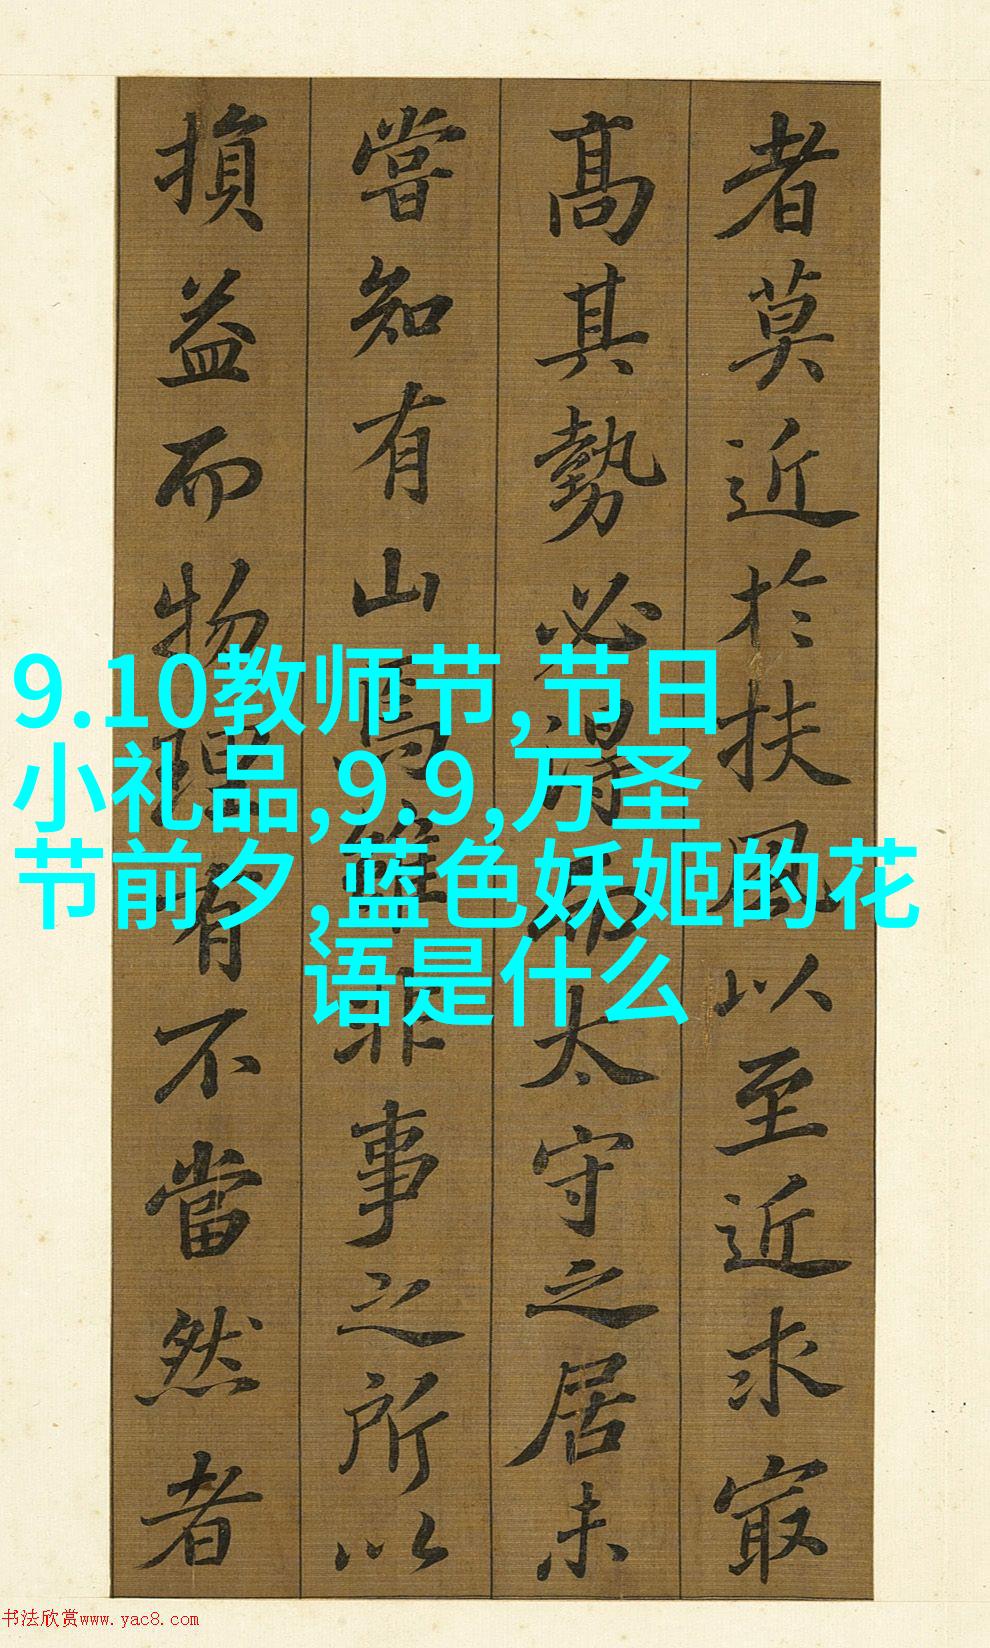 者莫近於扶風以至近求㝡
高其勢必得而太守之居未
嘗知有山焉雖非事之所以
損益而物理有不當然者
9.10教师节,节日
小礼品,9.9,万圣
节前夕,蓝色妖姬的花
语是什么
书法欣赏www.yac8.com